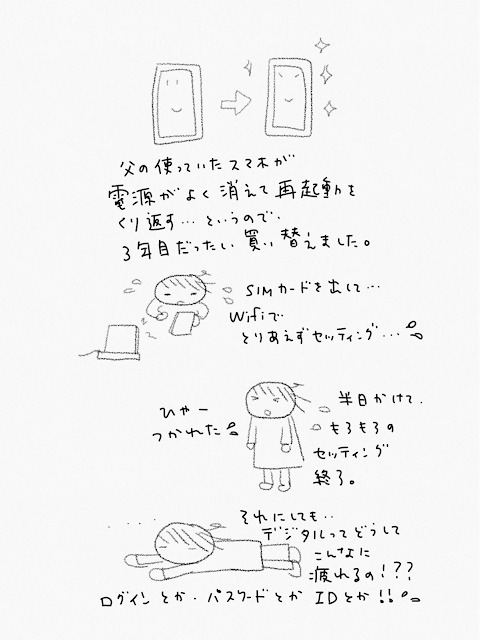 父の使っていたスマホが
電源がよく消えて再起動を
くり返す…というので、
3年目だったし買い替えました。
SIMカードを出して…
Wifiで
とりあえずセッティング…
ひゃー
つかれた
半日かけて、
もろもろの
セッティング
終了。
それにしても‥
デジタルってどうして
こんなに
疲れるの!??
ログインとか・パスワードとか IDとか!!